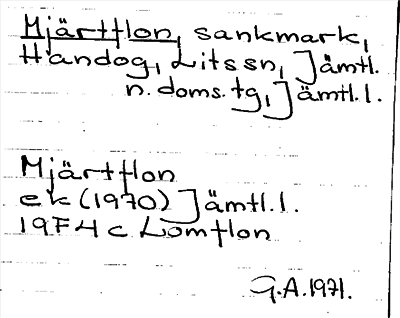 Mjärtflon, sankmark,
Handog, Lits sn, Jämtl.
n. doms. tg, Jämtl. l.
Mjärtflon
ek (1970) Jämtl. l.
19F4c Lomflon
G.A. 1971.